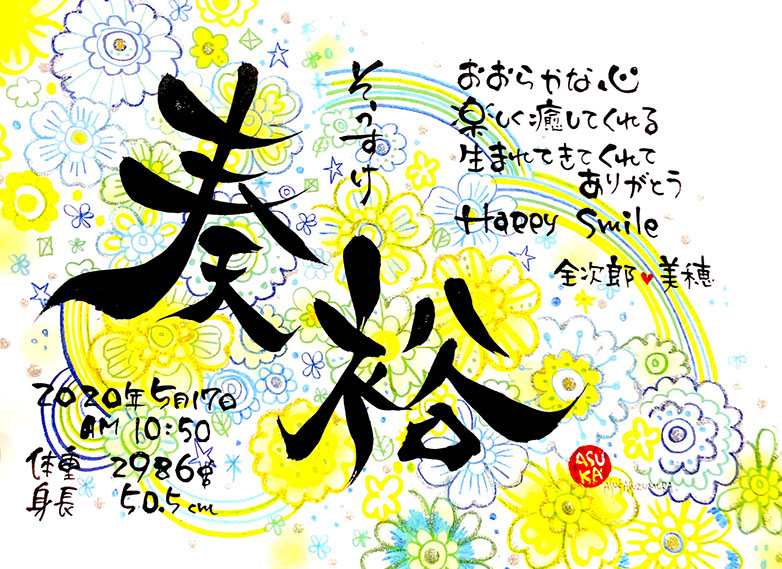 奏裕
そうすけ
おおらかな心
楽しく癒してくれる
生まれてきてくれて
ありがとう
Happy Smile
金次郎♥美穂
2020年5月17日
AM 10:50
体重 2986g
身長 50.5cm
ASUKA